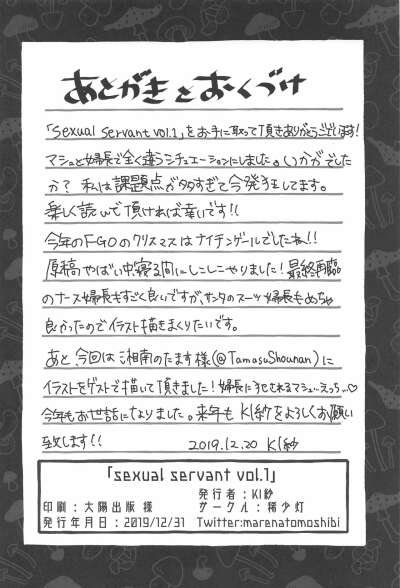 あとがきとおくづけ
「sexual servant vol.1」をお手に取って頂きありがとうございます！
マシュと婦長で全く違うシチュエーションにしました。いかがでした
か？ 私は課題点が多すぎて今発狂してます。
楽しく読んで頂ければ幸いです！！
今年のFGOのクリスマスはナイチンゲールでしたね！！
原稿やばい中寝る間にしこしこやりました！最終再臨
のナース婦長もすごく良いですが、サンタのスーツ婦長もめちゃ
良かったのでイラスト描きまくりたいです。
あと、今回は湘南のたます様(@TamasuShounan)に
イラストをゲストで描いて頂きました！婦長に
されるマシュ…えっっ…♡
今年もお世話になりました。来年もKI紗をよろしくお願い
致します！！
2019.12.20 KI紗
「sexual servant vol.1」
発行者：KI紗
印刷：大陽出版 様 サークル：稀少灯
発行年月日：2019/12/31 Twitter:marenatomoshibi